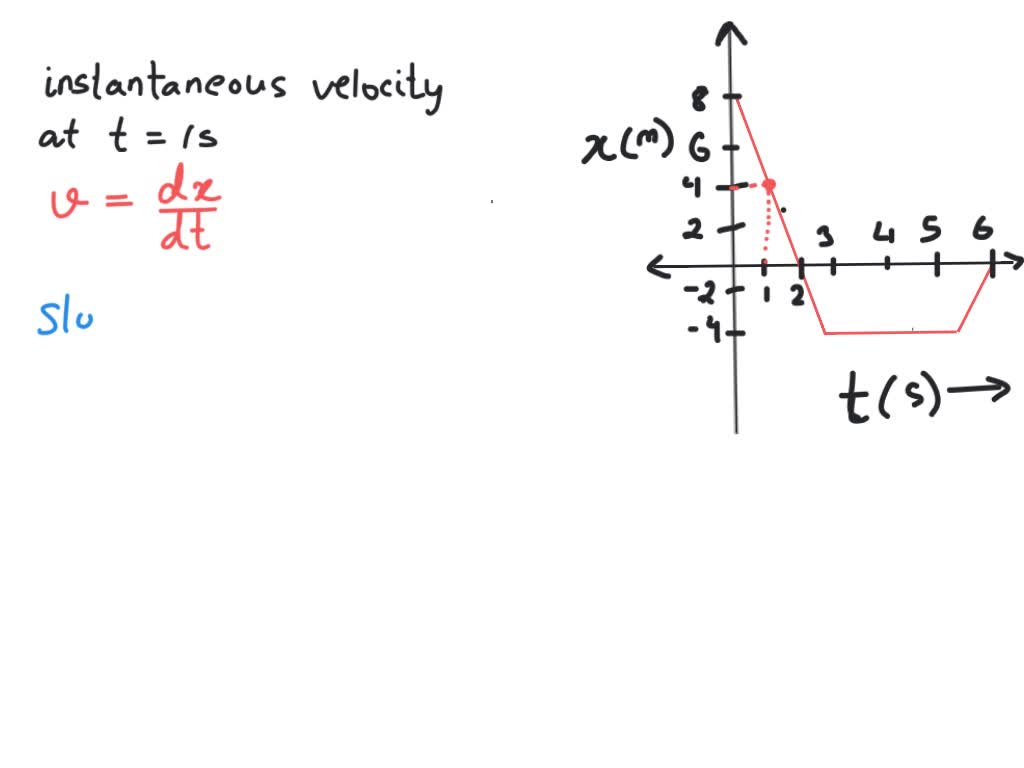 instantaneous velocity
at t = 1s
v = dx/dt
Slo
x(m)
8
6
4
2
-2
-4
1 2 3 4 5 6
t(s) →